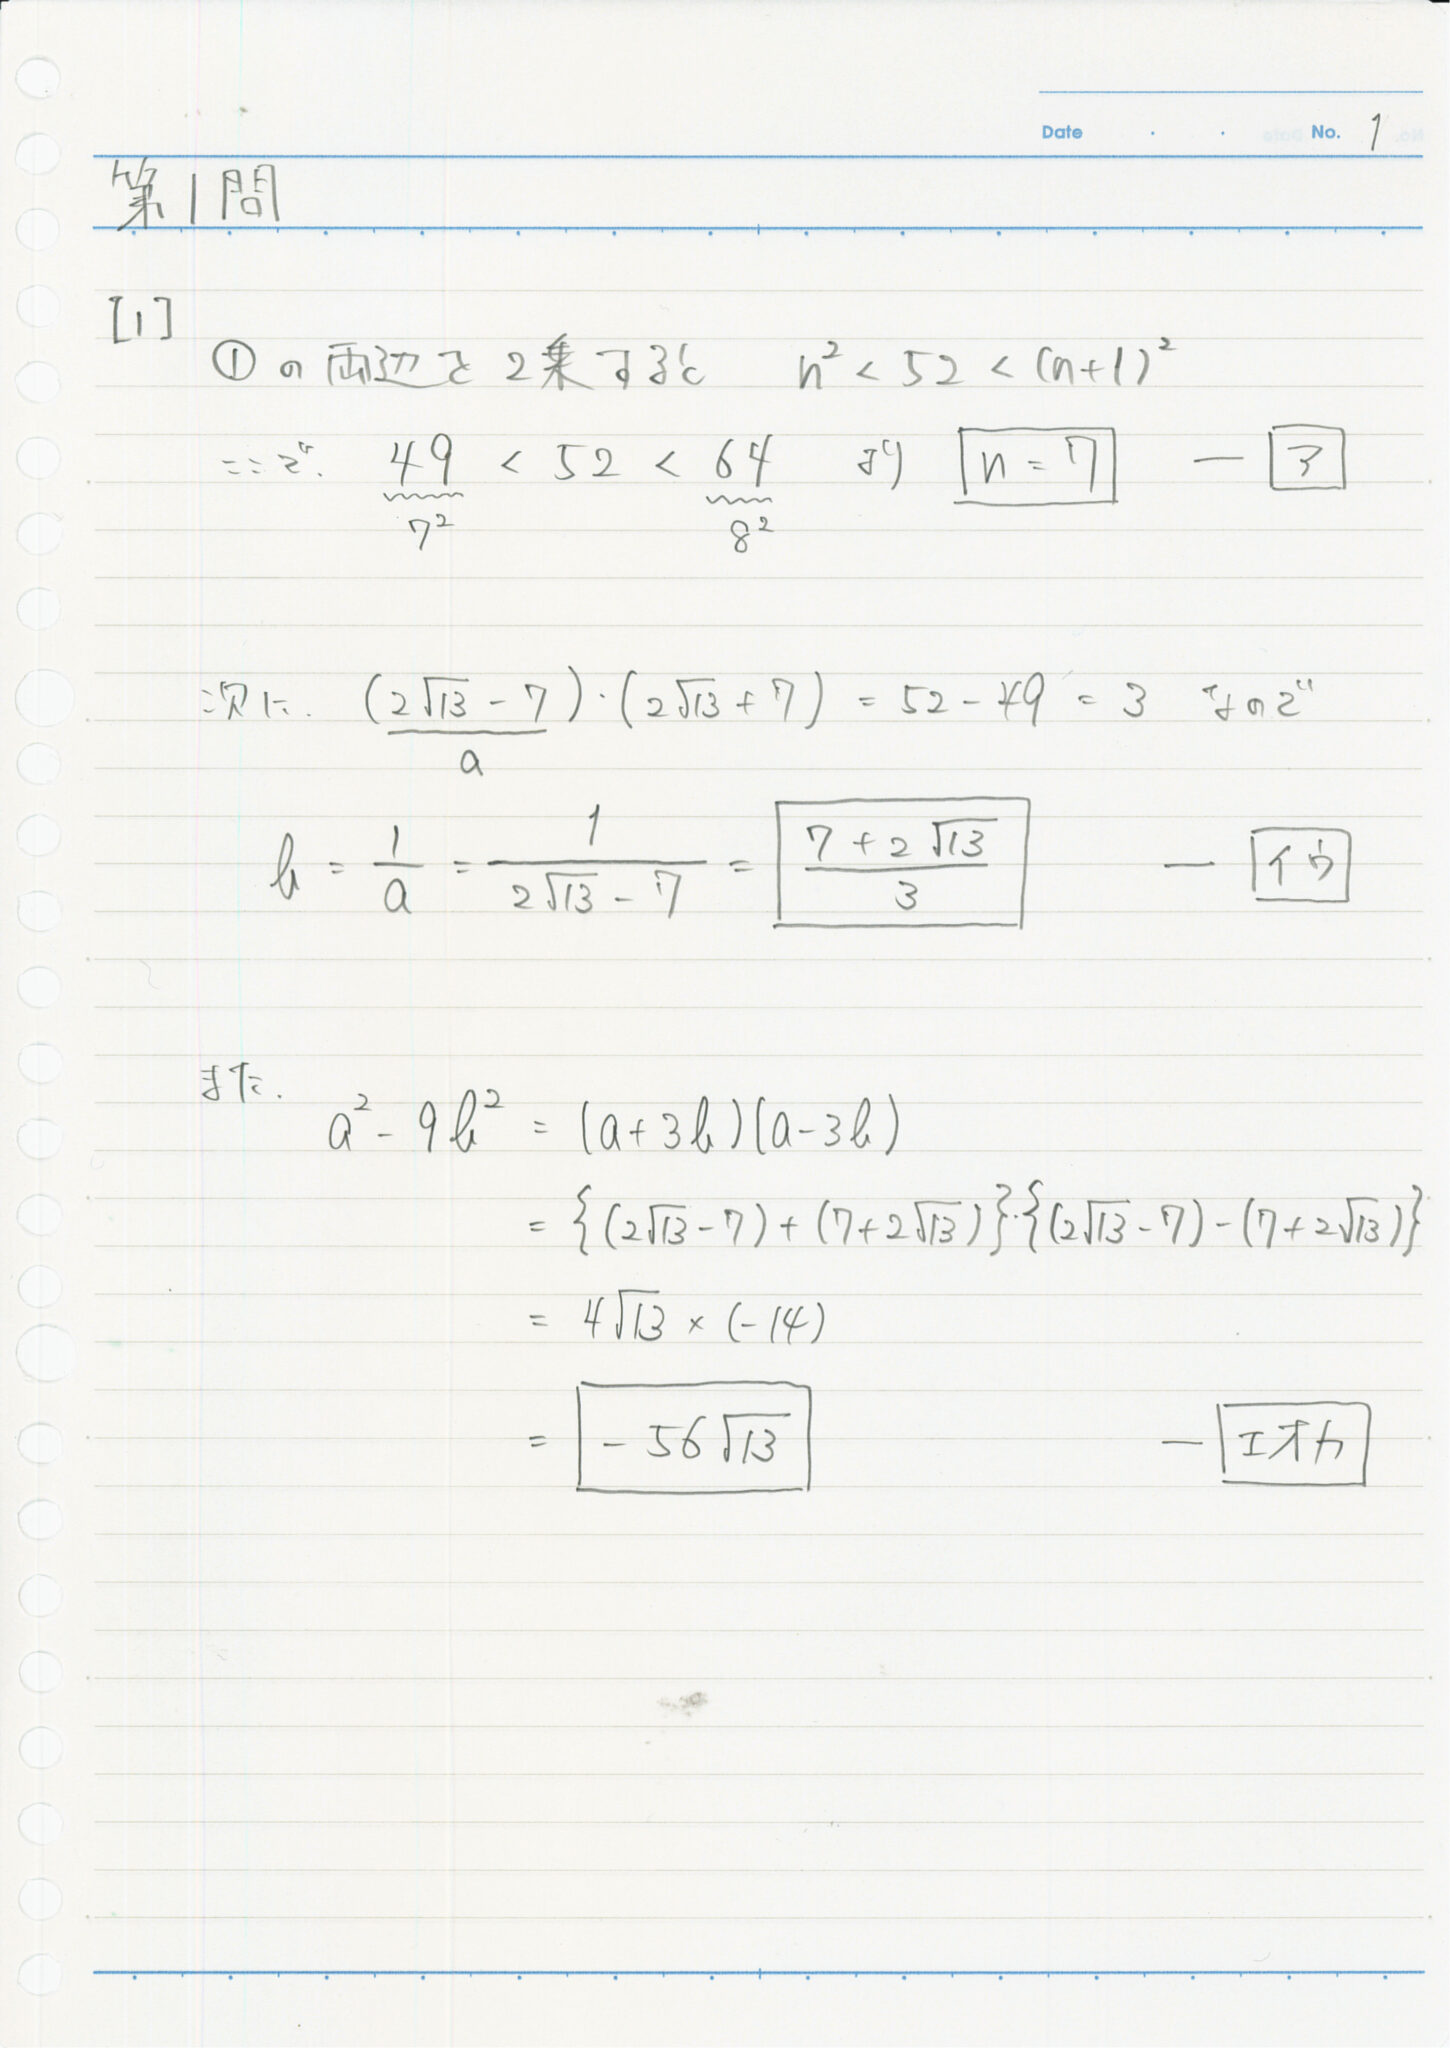 Date ・ ・ No. 1
第1問
[1]
①の両辺を2乗すると n² < 52 < (n+1)²
ここで、 49 < 52 < 64 より n = 7 — ア
7² 8²
次に、 (2√13 - 7)・(2√13 + 7) = 52 - 49 = 3 なので
a
b = 1/a = 1/(2√13 - 7) = (7 + 2√13)/3 — イウ
また、
a² - 9b² = (a+3b)(a-3b)
= {(2√13 - 7) + (7 + 2√13)}・{(2√13 - 7) - (7 + 2√13)}
= 4√13 × (-14)
= -56√13 — エオカ